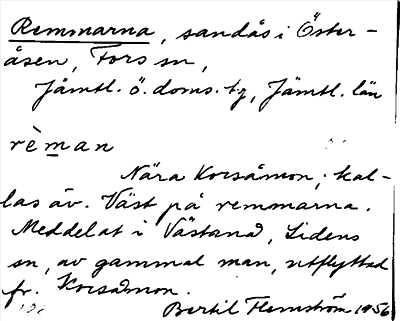 Remmarna, sandås i Öster-
åsen, Fors sn,
Jämtl. ö. doms. tg, Jämtl. län
rèman
Nära Korsåmon; kal-
las äv. Väst på remmarna.
Meddelat i Västanå, Lidens
sn, av gammal man, utflyttad
fr. Korsåmon.
Bertil Flemström 1956